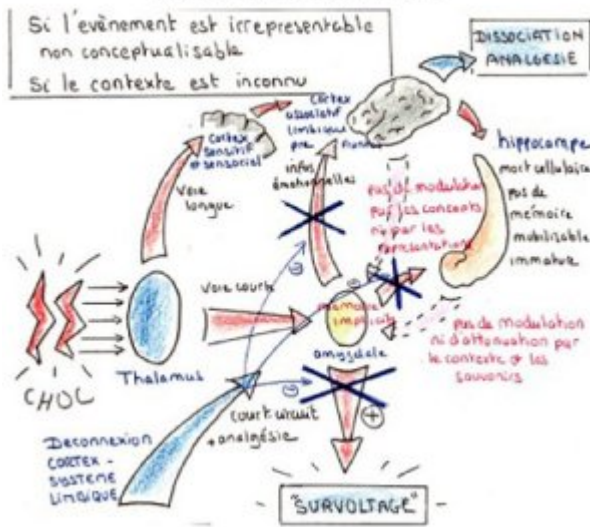 Si l'évènement est irreprésentable
non conceptualisable
Si le contexte est inconnu
DISSOCIATION
ANALGESIE
Cortex
sensitif
et sensoriel
Cortex
associatif
limbique
pre
frontal
hippocampe
mort cellulaire
pas de
mémoire
mobilisable
immature
Voie
longue
infos
émotionnelles
pas de modulation
par les concepts
ni par les
représentations
CHOC
Thalamus
Voie courte
mémoire
implicite
amygdale
pas de modulation
ni d'attenuation par
le contexte et les
souvenirs
court circuit
+ analgésie
+
Deconnexion
CORTEX -
SYSTEME
LIMBIQUE
"SURVOLTAGE"